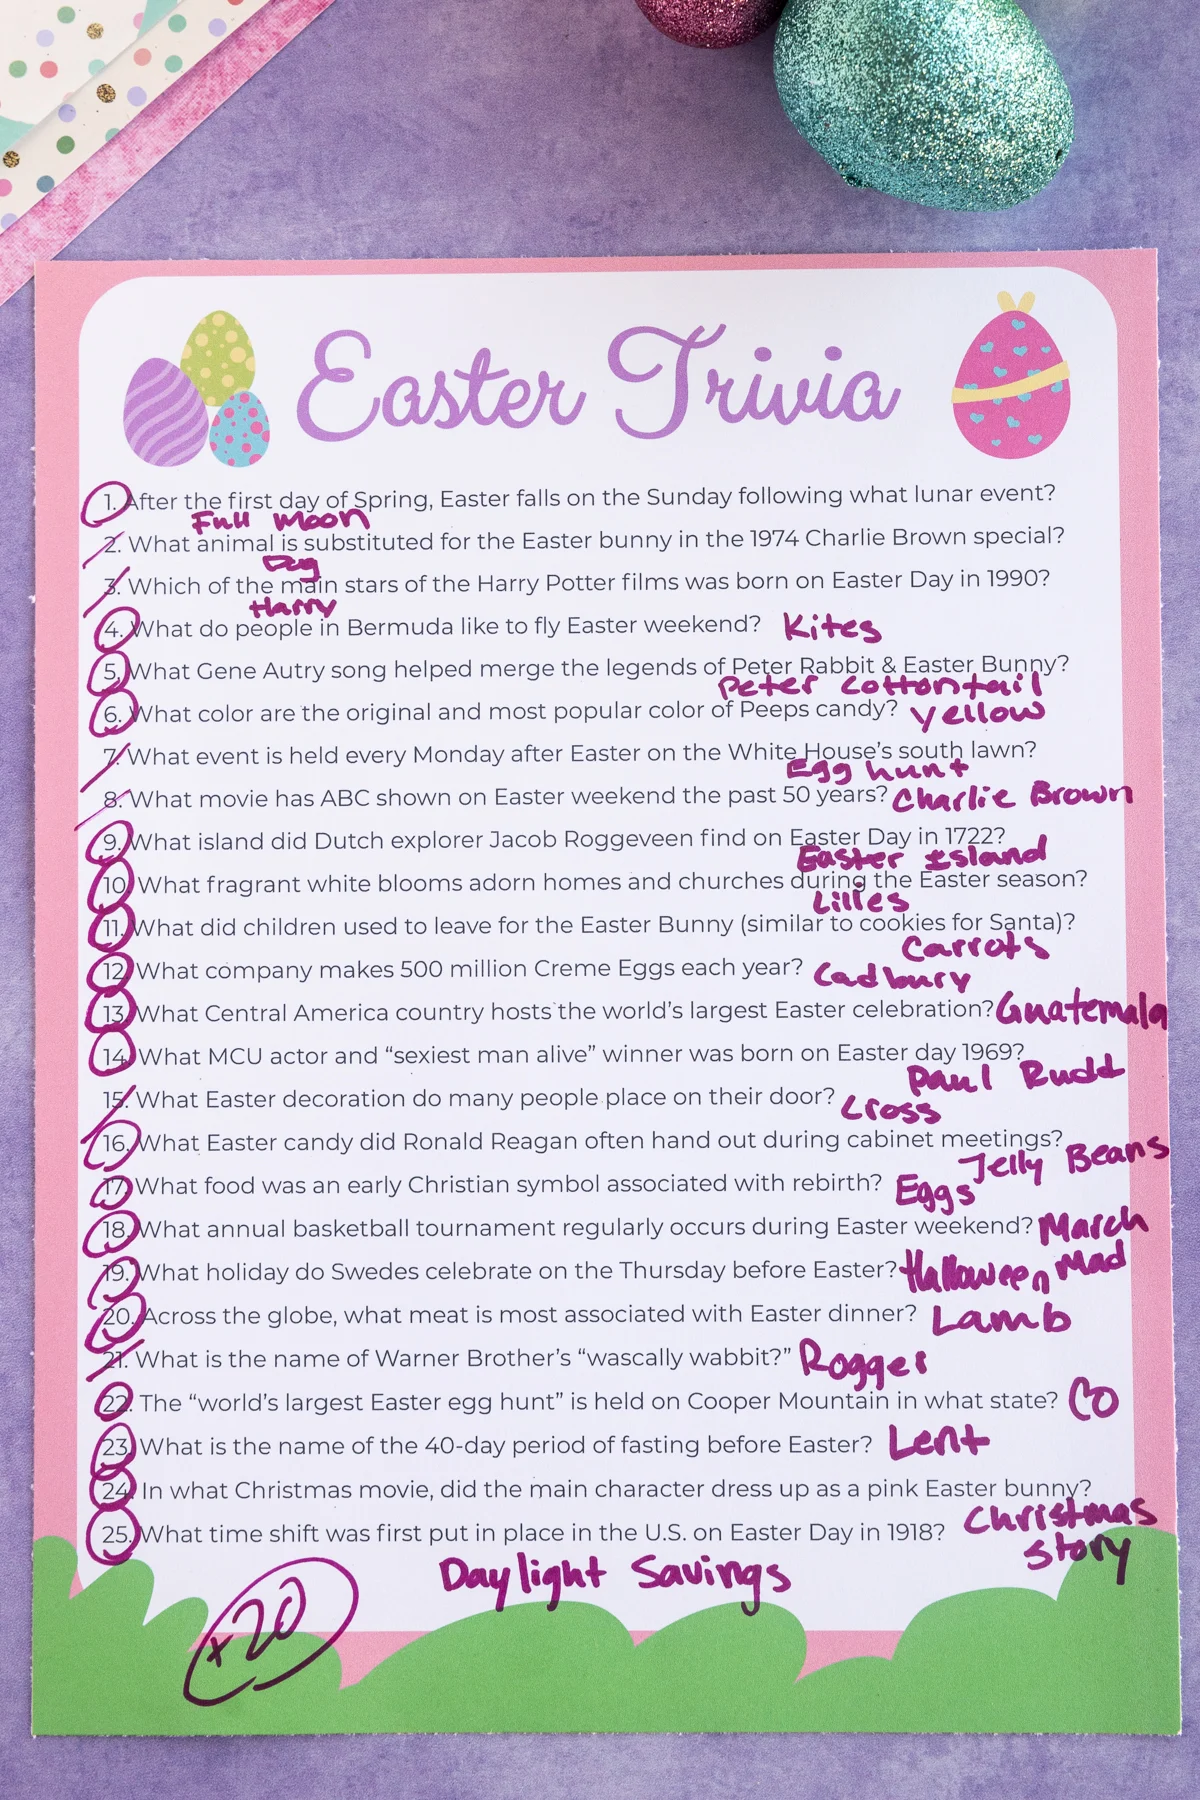 Easter Trivia
1. After the first day of Spring, Easter falls on the Sunday following what lunar event?
Full Moon
2. What animal is substituted for the Easter bunny in the 1974 Charlie Brown special?
Dog
3. Which of the main stars of the Harry Potter films was born on Easter Day in 1990?
Harry
4. What do people in Bermuda like to fly Easter weekend? Kites
5. What Gene Autry song helped merge the legends of Peter Rabbit & Easter Bunny?
Peter Cottontail
6. What color are the original and most popular color of Peeps candy? yellow
7. What event is held every Monday after Easter on the White House's south lawn?
Egg hunt
8. What movie has ABC shown on Easter weekend the past 50 years? Charlie Brown
9. What island did Dutch explorer Jacob Roggeveen find on Easter Day in 1722?
Easter Island
10. What fragrant white blooms adorn homes and churches during the Easter season?
Lilies
11. What did children used to leave for the Easter Bunny (similar to cookies for Santa)?
Carrots
12. What company makes 500 million Creme Eggs each year? Cadbury
13. What Central America country hosts the world's largest Easter celebration? Guatemala
14. What MCU actor and "sexiest man alive" winner was born on Easter day 1969?
Paul Rudd
15. What Easter decoration do many people place on their door? Cross
16. What Easter candy did Ronald Reagan often hand out during cabinet meetings?
Jelly Beans
17. What food was an early Christian symbol associated with rebirth? Eggs
18. What annual basketball tournament regularly occurs during Easter weekend? March
Mad
19. What holiday do Swedes celebrate on the Thursday before Easter? Halloween
20. Across the globe, what meat is most associated with Easter dinner? Lamb
21. What is the name of Warner Brother's "wascally wabbit?" Rogger
22. The "world's largest Easter egg hunt" is held on Cooper Mountain in what state? CO
23. What is the name of the 40-day period of fasting before Easter? Lent
24. In what Christmas movie, did the main character dress up as a pink Easter bunny?
Christmas
Story
25. What time shift was first put in place in the U.S. on Easter Day in 1918?
Daylight Savings
+20